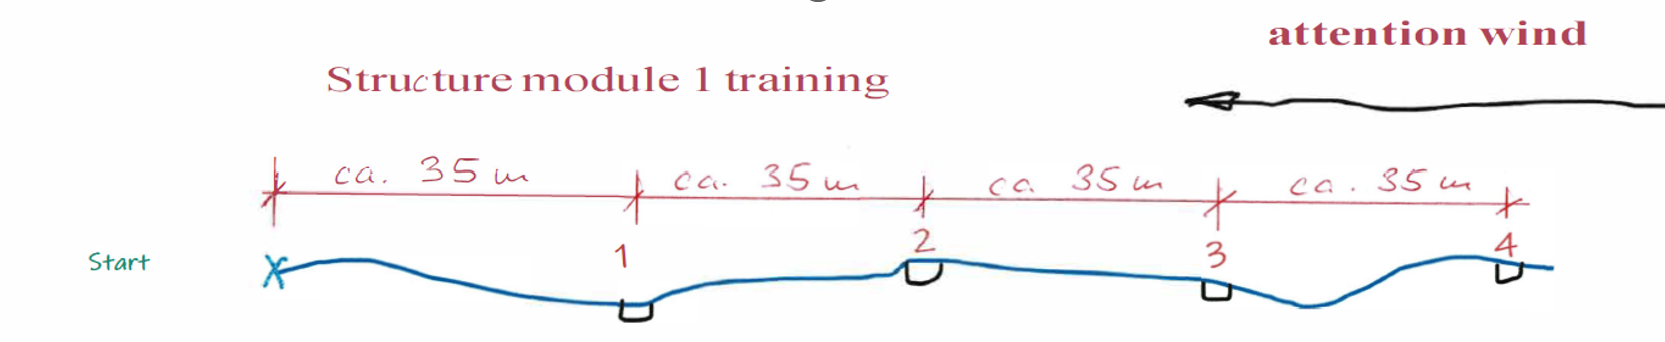 attention wind
Structure module 1 training
ca. 35 m ca. 35 m ca. 35 m ca. 35 m
Start
1 2 3 4